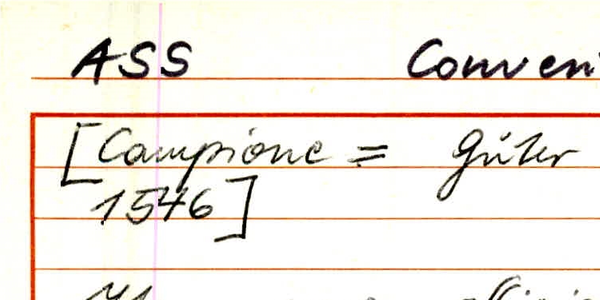 ASS Conven
[Campione = Güter
1576]